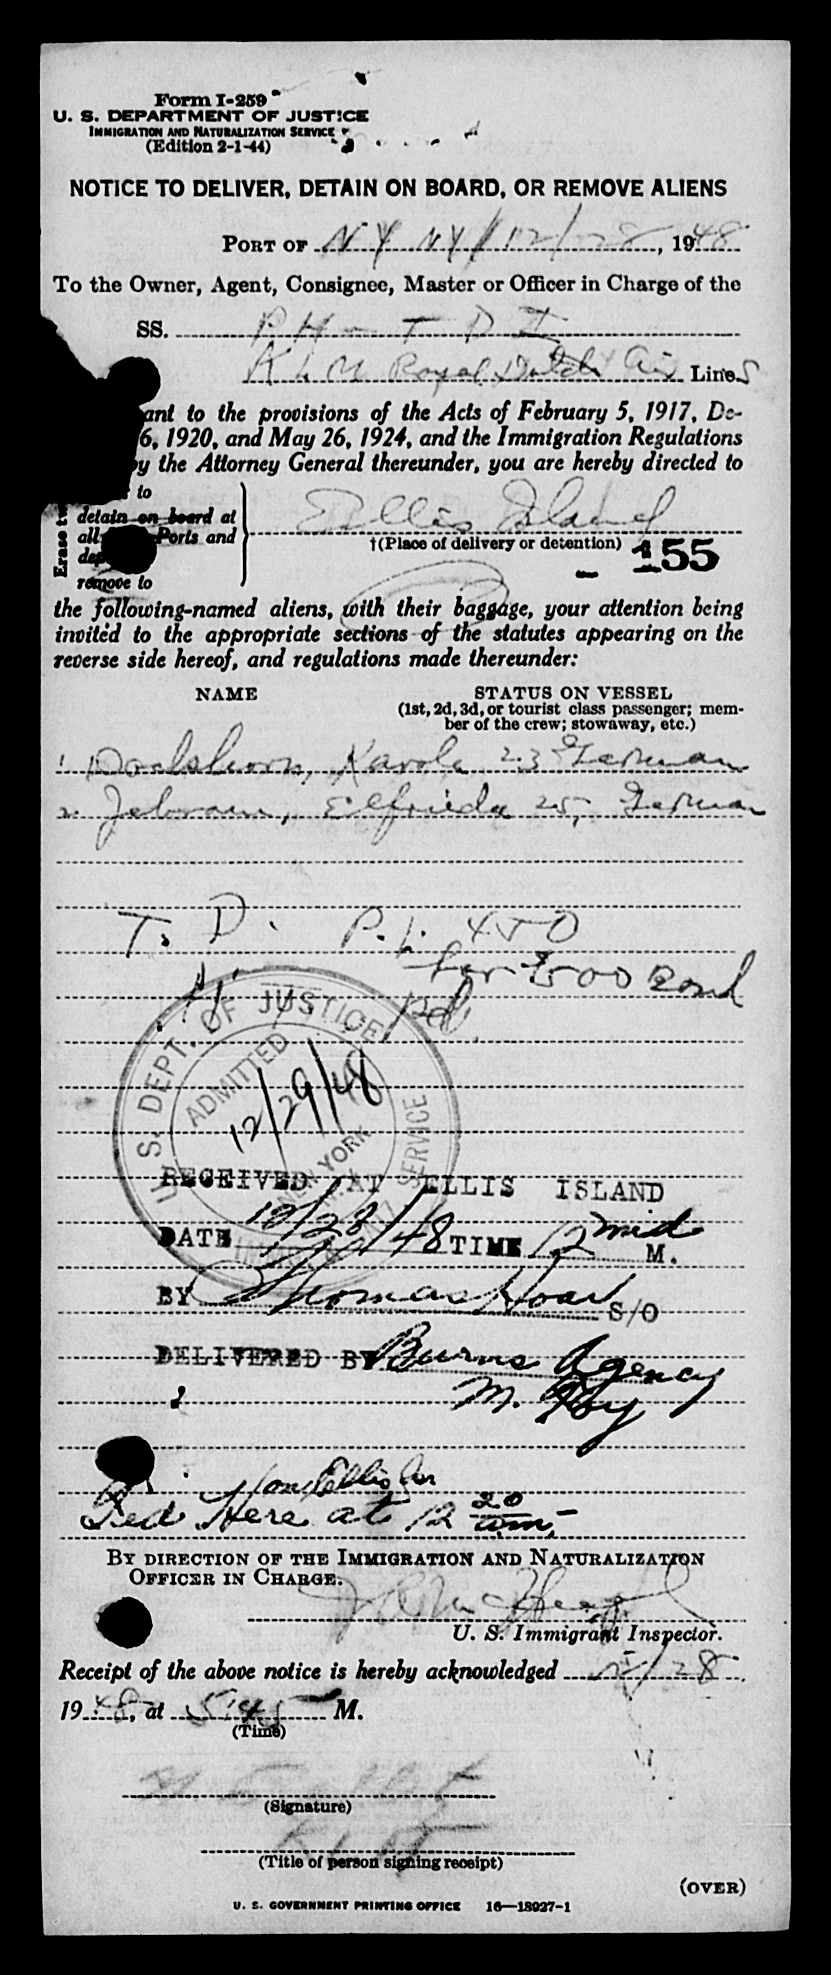 Form I-259
U. S. DEPARTMENT OF JUSTICE
IMMIGRATION AND NATURALIZATION SERVICE
(Edition 2-1-44)
NOTICE TO DELIVER, DETAIN ON BOARD, OR REMOVE ALIENS
PORT OF NY NY 12/28, 1948
To the Owner, Agent, Consignee, Master or Officer in Charge of the
SS. PH-TDI
KLM Royal Dutch Air Lines
ant to the provisions of the Acts of February 5, 1917, De-
6, 1920, and May 26, 1924, and the Immigration Regulations
by the Attorney General thereunder, you are hereby directed to
to
detain on board at
all Ports and
remove to
Erase
Ellis Island
†(Place of delivery or detention)
155
the following-named aliens, with their baggage, your attention being
invited to the appropriate sections of the statutes appearing on the
reverse side hereof, and regulations made thereunder:
NAME STATUS ON VESSEL
(1st, 2d, 3d, or tourist class passenger; mem-
ber of the crew; stowaway, etc.)
1. Karola 23 German
2. Elfrieda 25, German
T. D. P. L. 450
for 500 Bond
U. S. DEPT. OF JUSTICE
ADMITTED
12/29/48
NEW YORK
SERVICE
RECEIVED AT ELLIS ISLAND
DATE 12/28/48 TIME 12 mid M.
BY Thomas Hoar S/O
DELIVERED BY Burns Agency
M.
Fed Here at 12 20 am
BY DIRECTION OF THE IMMIGRATION AND NATURALIZATION
OFFICER IN CHARGE.
U. S. Immigrant Inspector.
Receipt of the above notice is hereby acknowledged 12/28
1948, at 5:45 M.
(Time)
(Signature)
(Title of person signing receipt)
(OVER)
U. S. GOVERNMENT PRINTING OFFICE 16—18927-1